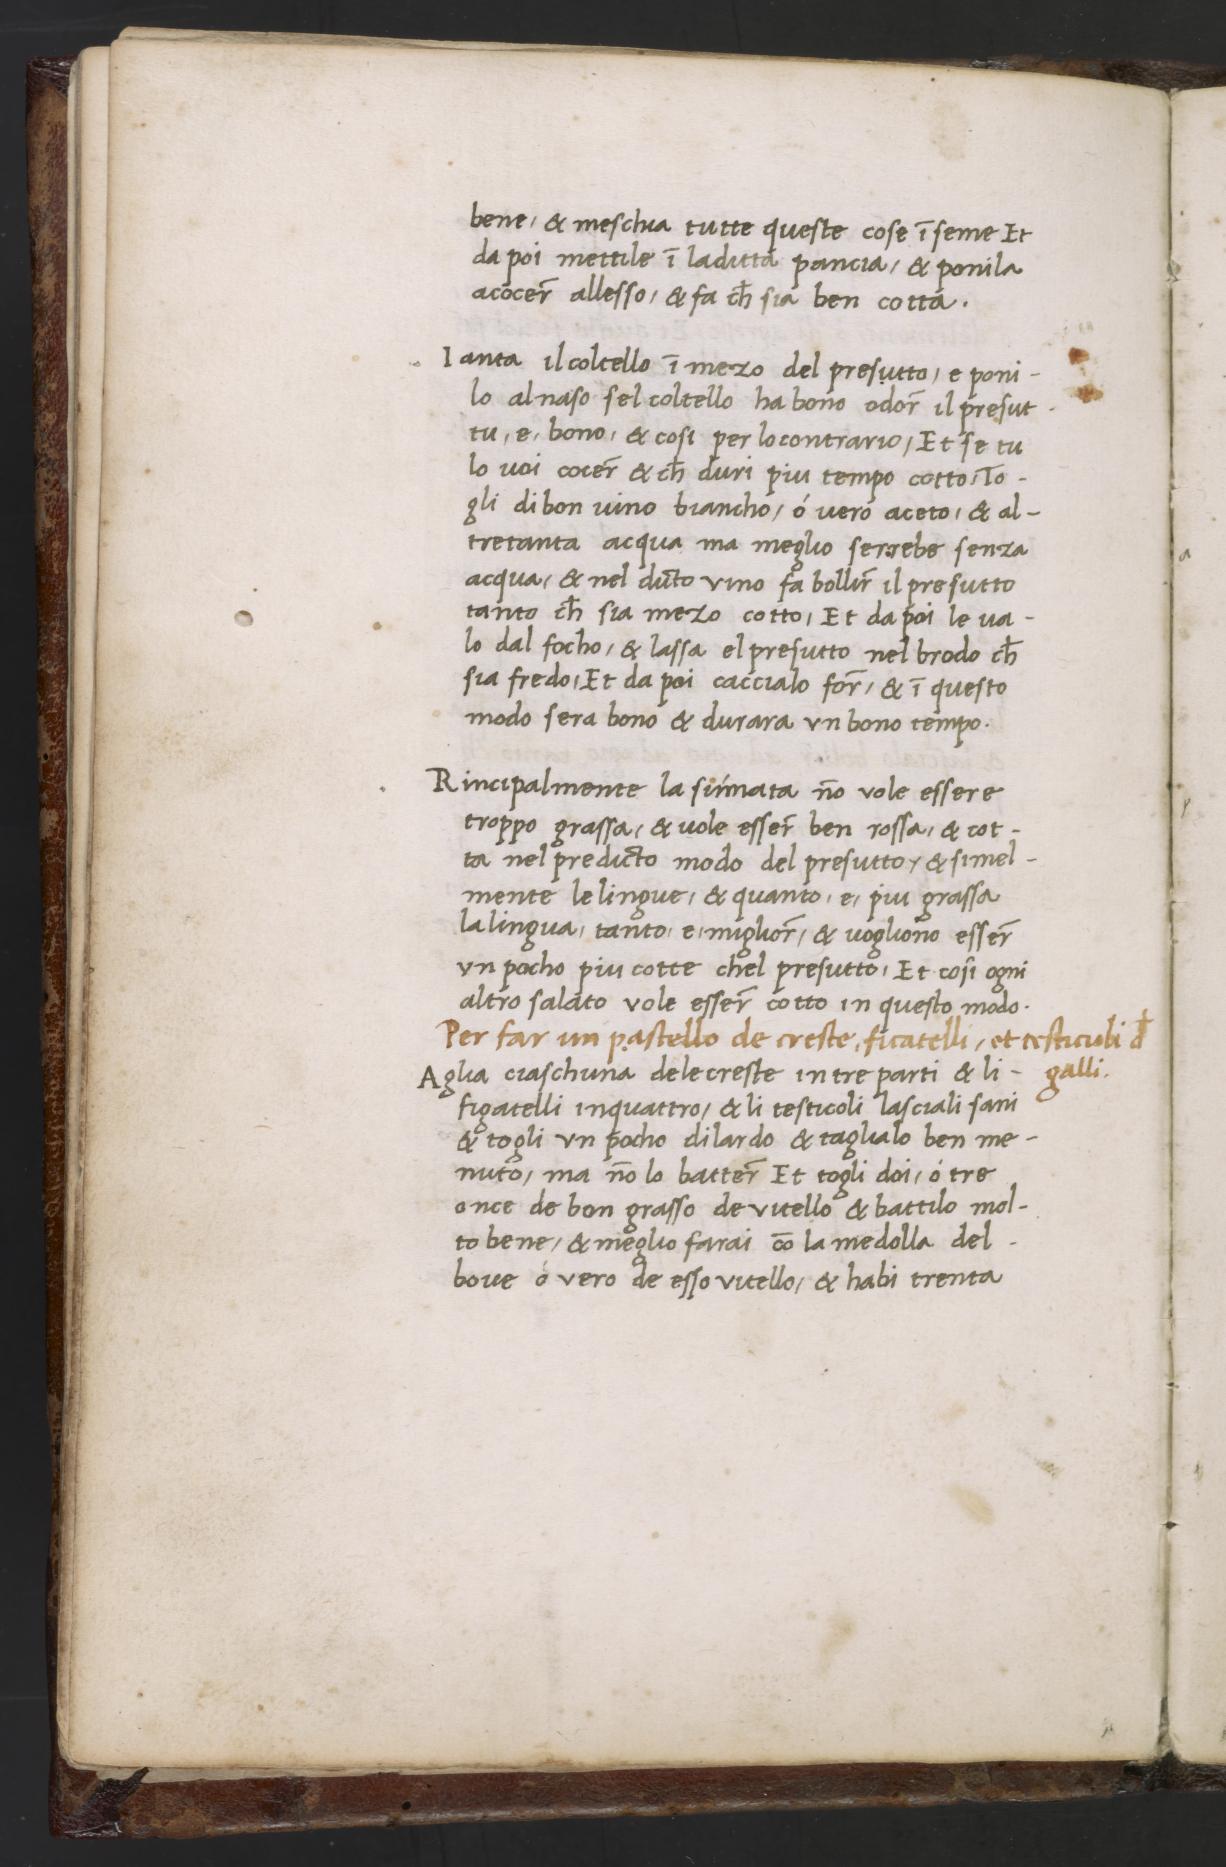 bene, & meschia tutte queste cose ī seme Et
da poi mettile ī la ditta pancia, & ponila
a cocer̄ allesso, & fa ch̄ sia ben cotta.
Ianta il coltello ī mezo del presutto, e poni-
lo al naso sel coltello ha bono odor̄ il presut
tu, e, bono, & cosi per lo contrario, Et se tu
lo uoi cocer̄ & ch̄ duri piu tempo cotto, To-
gli di bon uino biancho, ó vero aceto, & al-
tretanta acqua ma meglio serrebe senza
acqua, & nel dicto vino fa bollir̄ il presutto
tanto ch̄ sia mezo cotto, Et da poi le ua-
lo dal focho, & lassa el presutto nel brodo ch̄
sia fredo, Et da poi caccialo for̄, & ī questo
modo sera bono & durara vn bono tempo.
Rincipalmente la summata nō vole essere
troppo grassa, & uole esser̄ ben rossa, & cot-
ta nel predicto modo del presutto, & simel-
mente le lingue, & quanto, e, piu grassa
la lingua, tanto, e, miglior̄, & uogliono esser̄
vn pocho piu cotte chel presutto, Et cosi ogni
altro salato vole esser̄ cotto in questo modo.
Per far un pastello de creste, ficatelli, et testiculi đ
galli.
Aglia ciaschuna de le creste in tre parti & li-
figatelli in quattro, & li testicoli lasciali sani
& togli vn pocho di lardo & taglialo ben me-
nuto, ma nō lo batter̄ Et togli doi, ó tre
once de bon grasso de vitello & battilo mol-
to bene, & meglio farai cō la medolla del-
boue ó vero de esso vitello, & habi trenta